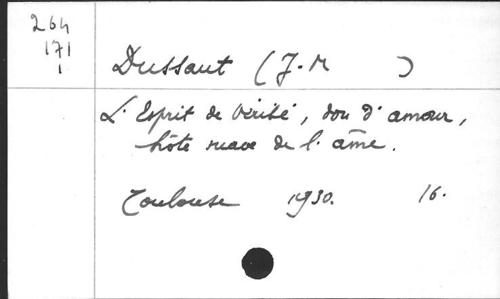 264
171
1
Dussaut (J. M )
L'Esprit de Vérité, don d'amour,
hôte suave de l'âme.
Toulouse 1930. 16.